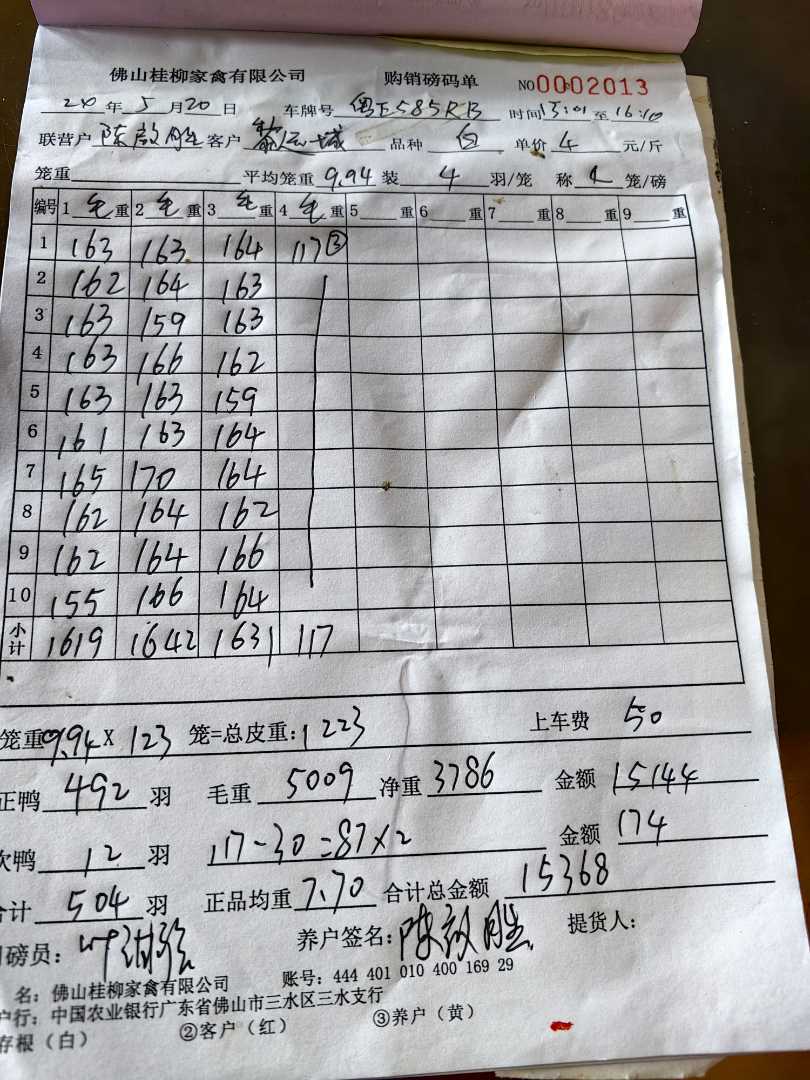 佛山桂柳家禽有限公司 购销磅码单 NO0002013
年5月20日 车牌号 粤E585RB 时间13:01至16:10
联营户 陈敬胜 客户 品种 白 单价 4 元/斤
笼重 平均笼重 9.94 装 4 羽/笼 称 4 笼/磅
编号 1 毛 重 2 毛 重 3 毛 重 4 毛 重 5 重 6 重 7 重 8 重 9 重
1 163 163 164 117③
2 162 164 163
3 163 159 163
4 163 166 162
5 163 163 159
6 161 163 164
7 165 170 164
8 162 164 162
9 162 164 166
10 155 166 164
小计 1619 1642 1631 117
笼重9.94X 123 笼=总皮重:1223 上车费 50
正鸭 492 羽 毛重 5009 净重 3786 金额 15144
次鸭 12 羽 117-30=87×2 金额 174
合计 504 羽 正品均重 7.70 合计总金额 15368
磅员: 养户签名:陈敬胜 提货人:
名:佛山桂柳家禽有限公司 账号:444 401 010 400 169 29
户行:中国农业银行广东省佛山市三水区三水支行
存根(白) ②客户(红) ③养户(黄)